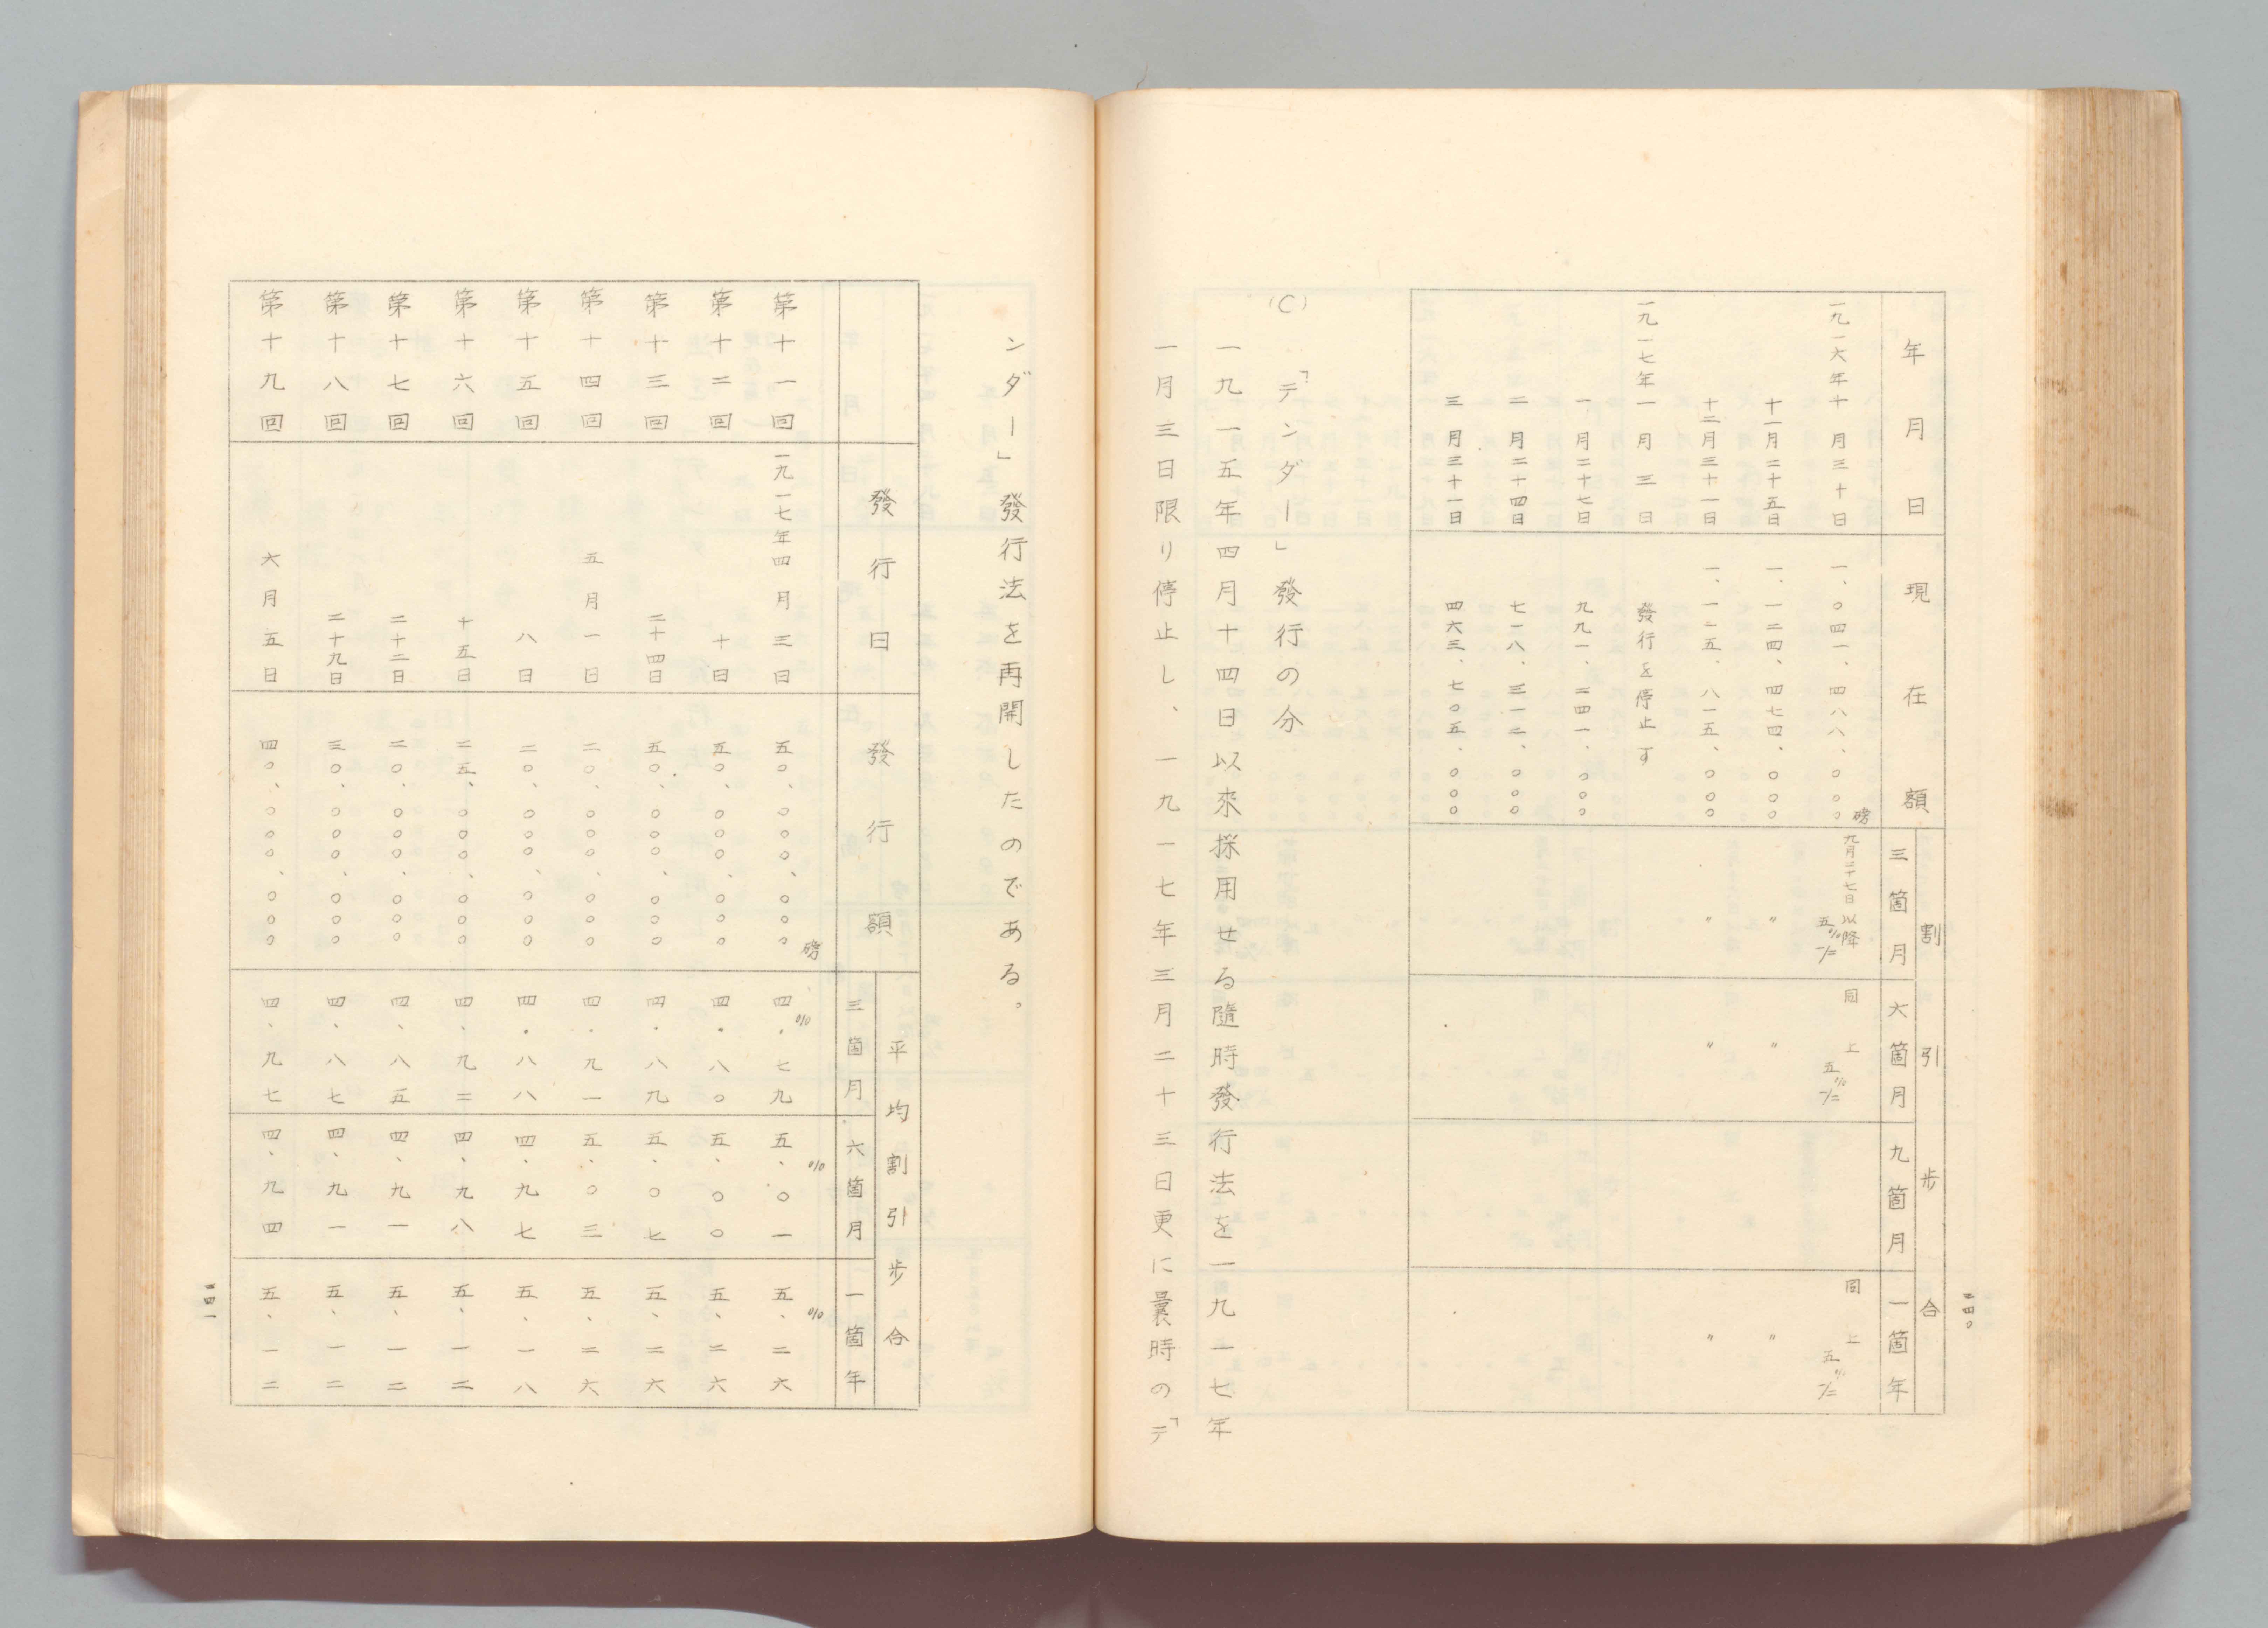 年月日
現在額
割引歩合
三箇月
六箇月
九箇月
一箇年
一九一六年十月三十日
一、〇四一、四八八、〇〇〇磅
九月二十七日以降
五%½
同上
五%½
同上
五%½
十一月二十五日
一、一二四、四七四、〇〇〇
〃
〃
〃
十二月三十一日
一、一一五、八一五、〇〇〇
〃
〃
〃
一九一七年一月三日
發行を停止す
一月二十七日
九九一、二四一、〇〇〇
二月二十四日
七一八、三一二、〇〇〇
三月三十一日
四六三、七〇五、〇〇〇
(C)「テンダー」發行の分
一九一五年四月十四日以來採用せる隨時發行法を一九一七年
一月三日限り停止し、一九一七年三月二十三日更に曩時の「テ
二四〇
ンダー」發行法を再開したのである。
發行日
發行額
平均割引歩合
三箇月
六箇月
一箇年
第十一回
一九一七年四月三日
五〇、〇〇〇、〇〇〇磅
四・七九%
五、〇一%
五、二六%
第十二回
十日
五〇、〇〇〇、〇〇〇
四・八〇
五、〇〇
五、二六
第十三回
二十四日
五〇、〇〇〇、〇〇〇
四・八九
五、〇七
五、二六
第十四回
五月一日
二〇、〇〇〇、〇〇〇
四・九一
五、〇三
五、二六
第十五回
八日
二〇、〇〇〇、〇〇〇
四・八八
四、九七
五、一八
第十六回
十五日
二五、〇〇〇、〇〇〇
四、九二
四、九八
五、一二
第十七回
二十二日
二〇、〇〇〇、〇〇〇
四、八五
四、九一
五、一二
第十八回
二十九日
三〇、〇〇〇、〇〇〇
四、八七
四、九一
五、一二
第十九回
六月五日
四〇、〇〇〇、〇〇〇
四、九七
四、九四
五、一二
二四一